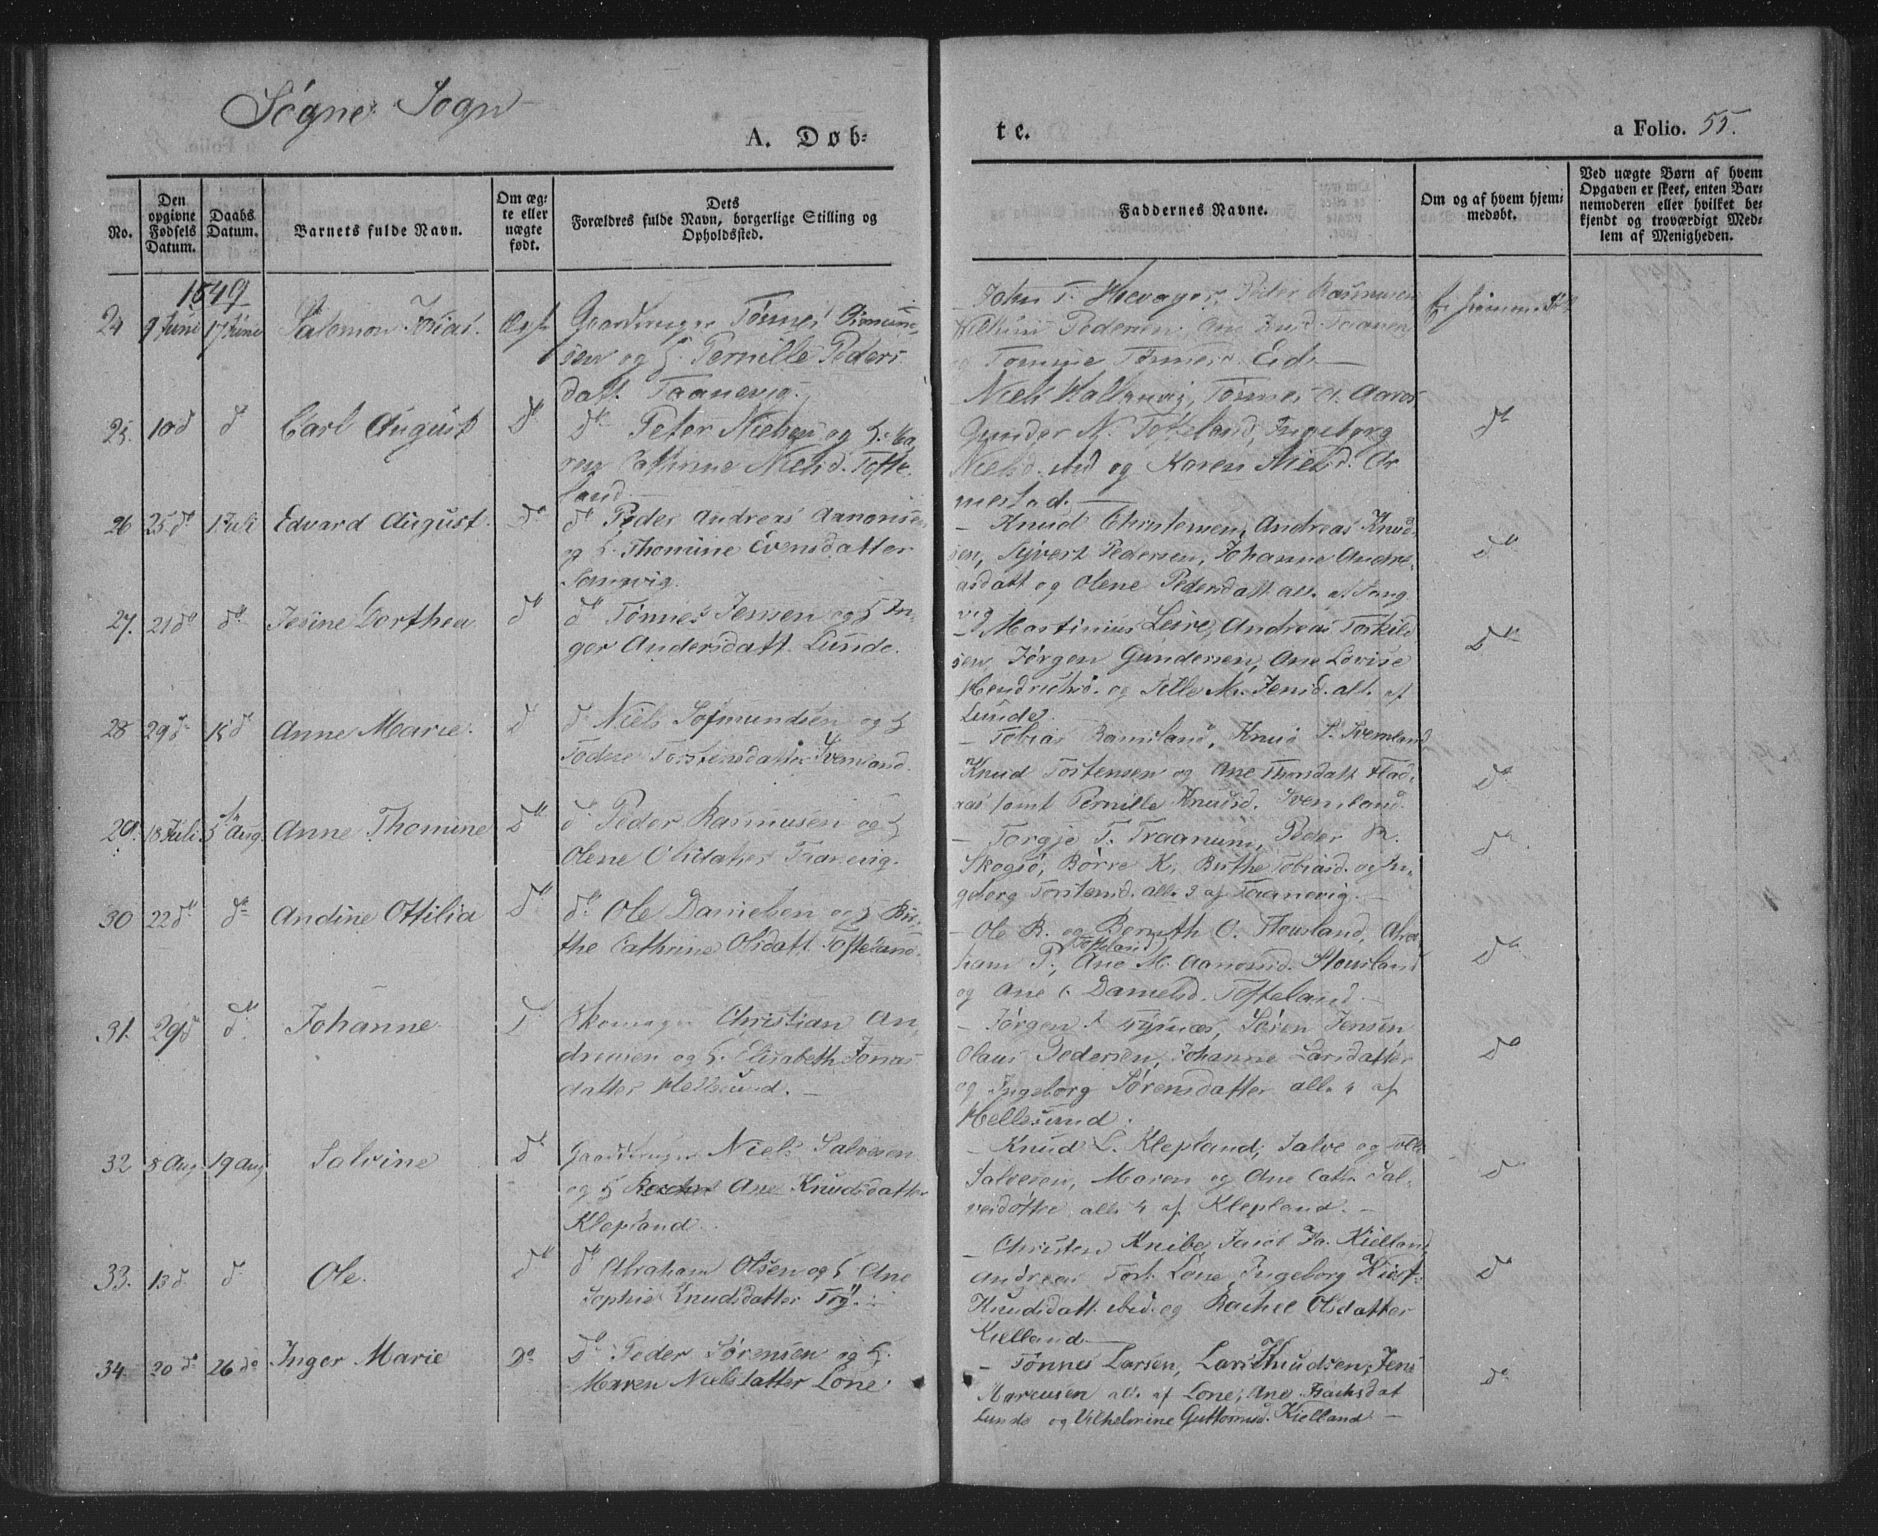 Søgne Sogn
A. Døb-
te.
a Folio. 55.
No.
Den opgivne Fødsels Datum.
Daabs Datum.
Barnets fulde Navn.
Om ægte eller uægte født.
Dets Forældres fulde Navn, borgerlige Stilling og Opholdssted.
Faddernes Navne.
Om og af hvem hjemmedøbt.
Ved uægte Børn af hvem Opgaven er skeet, enten Barnemoderen eller hvilket bekjendt og troværdigt Medlem af Menigheden.
1849
24 9 Juni 17 Juni Salomon Tobias. Ægte Gaardbruger Tønnes
sen og H. Pernille Peders
datt. Taanevig.
John T. Høvager, Peder Rasmusen
Pedersen, Ane Taanev
og Tomine Tønnesd. Eid.
25. 10 d d Carl August D d Peter Nielsen og H. Ca
ren Cathrine Nielsd. Tofte
land
Niels Tønnes A. Aaros
Gunder N. Tofteland, Ingeborg
Nielsd. ibid og Karen Nielsd. Ar
mestad.
do
26 25 do 1 Juli Edvard August. Do do Peder Andreas Aanonsen
og H. Thomine Evensdatter
Songvig.
Knud Christensen, Andreas Knud
sen, Syvert Pedersen, Johanne Andre
asdatt og Olene Pedersdatt. all. af Song
vig
Do
27. 21 do do Jesine Dorthea do do Tønnes Jensen og H In
ger Andersdatt. Lunde.
Martinius Leire, Andreas Torkild
sen, Jørgen Gundersen, Ane Lovise
Hendrichsd. og Sille M. Jensd. all. af
Lunde.
Do
28 29 d 15 d Anne Marie. d d Niels Sofmundsen og H
Todne Torstensdatter Svenland.
Tobias Ramsland, Knud S. Svenland
Knud Torstensen og Ane Thorsdatt
samt Pernille Knudsd. Svenland.
do
29. 18 Juli 5te Aug. Anne Thomine Do d Peder Rasmusen og H
Olene Olsdatter Taanevig.
Torgje T. Traanum, Peder R.
Skogsø, Børre K. Birthe Tobiasd. og In
geborg Torstensd. alle 3 af Taanevig.
do
30 22 do do Andine Ottilia Do do Ole Danielsen og H Bir
the Cathrine Olsdatt. Tofteland.
Ole B. og Bernth O. Stousland, Abra
ham P. Tofteland, Ane M. Aanonsd. Stousland
og Ane C. Danielsd. Tofteland.
Do
31. 29 do do Johanne. D Skomager Christian An
dersen og H. Elisabeth Jonas
datter Hellesund.
Jørgen Søren Jensen
Olaus Pedersen, Johanne Larsdatter
og Ingeborg Sørensdatter alle 4 af
Hellesund.
Do
32 8 Aug. 19 Aug Salvine Do Gaardbruger Niels Salvesen
og H Ane Knudsdatter
Klepland.
Knud L. Klepland, Salve og Ole
Salvesen, Maren og Ane Cath. Sal
vesdøttre alle 4 af Klepland.
D
33. 13 d. d. Ole. Do do Abraham Olsen og H Ane
Sophie Knudsdatter Try.
Christen Knibe, Kielland
Andreas Tort. Lone, Ingeborg Kirst.
Knudsdatt. ibid. og Rachel Olsdatter
Kielland
Do
34. 20 do 26 do Inger Marie Do Do Peder Sørensen og H.
Maren Nielsdatter Lone.
Tønnes Larsen, Lars Knudsen, Jens
Marcusen alle af Lone, Ane Isachsdat
Lunde og Vilhelmine Guttormsd. Kielland
Do